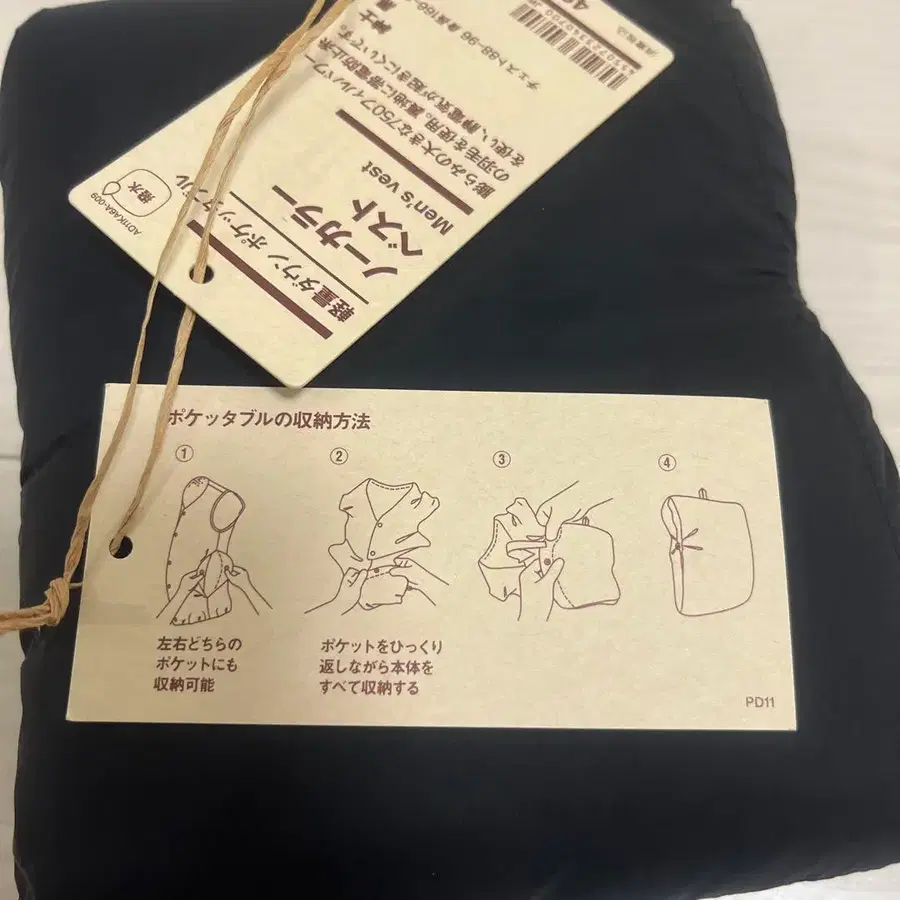 軽量ダウン ポケッタブル
ノーカラー
ベスト
Men's vest
膨らみの大きな750フィルパワー
の羽毛を使用。裏地に帯電防止糸
を使い、静電気が起きにくいです。
紳士
チェスト88-96 身長165-
撥水
AD11KABA-009
消費税込
ポケッタブルの収納方法
① ② ③ ④
左右どちらの
ポケットにも
収納可能
ポケットをひっくり
返しながら本体を
すべて収納する
PD11